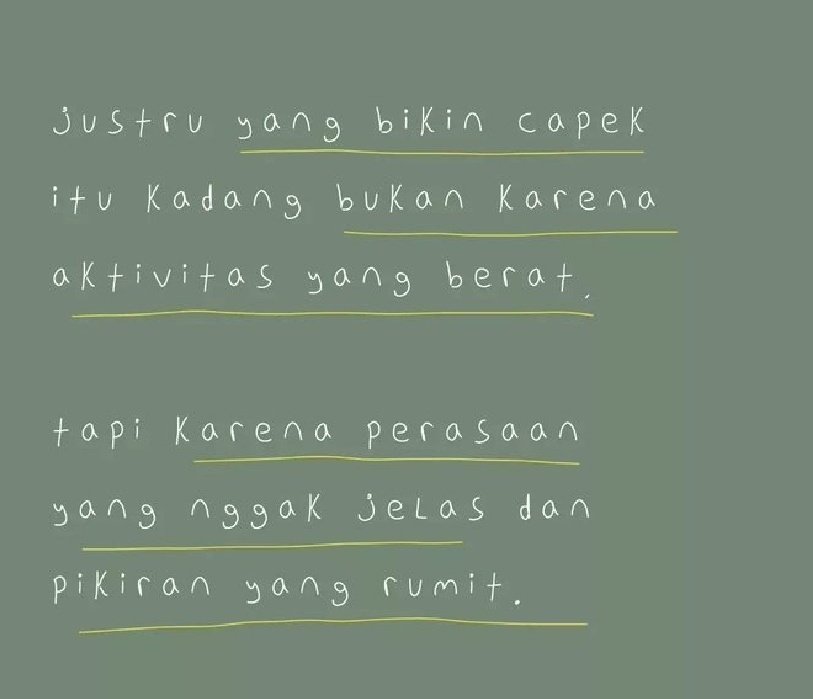 justru yang bikin capek
itu kadang bukan karena
aktivitas yang berat.
tapi karena perasaan
yang nggak jelas dan
pikiran yang rumit.